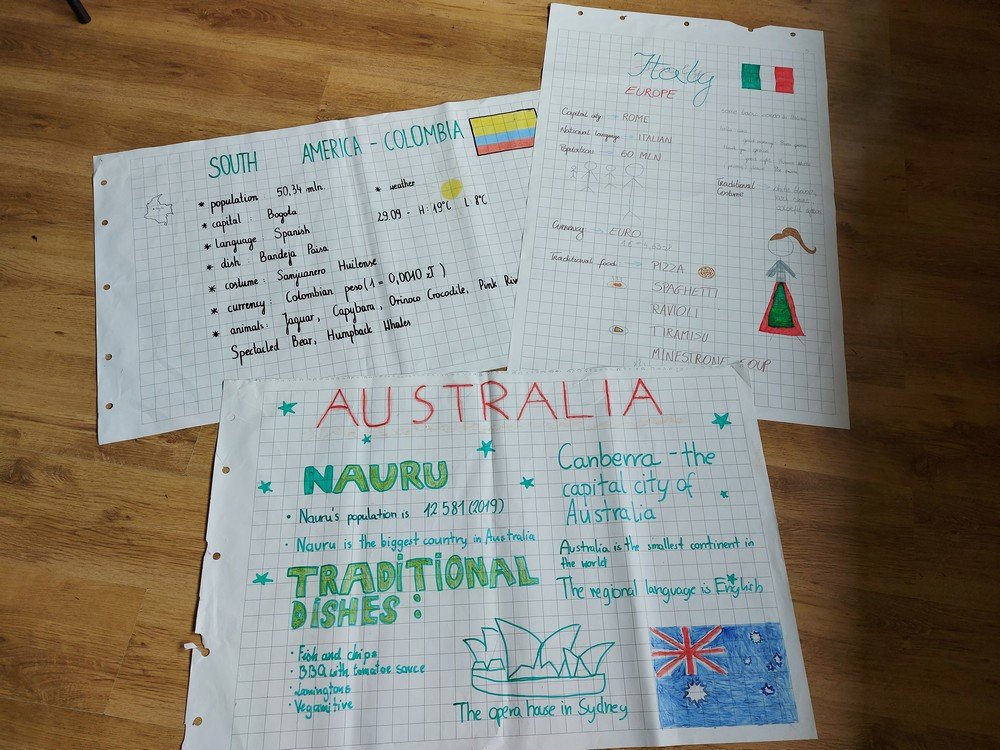 SOUTH AMERICA - COLOMBIA
* population: 50.34 mln.
* capital: Bogota
* language: Spanish
* dish: Bandeja Paisa
* costume: Sanjuanero Huilense
* currency: Colombian peso (1 = 0,0010 zł)
* animals: Jaguar, Capybara, Orinoco Crocodile, Pink Riv
Spectacled Bear, Humpback Whales
* weather
29.09 - H: 19°C L: 8°C
Italy
EUROPE
Capital city → ROME
National language → ITALIAN
Population → 60 MLN
Currency → EURO
Traditional food → PIZZA
SPAGHETTI
RAVIOLI
TIRAMISU
MINESTRONE SOUP
Traditional
Costume
AUSTRALIA
NAURU
• Nauru's population is 12 581 (2019)
• Nauru is the biggest country in Australia
TRADITIONAL
DISHES:
• Fish and chips
• BBQ with tomatoe sauce
• Lamingtons
• Vegamitive
Canberra - the
capital city of
Australia
Australia is the smallest continent in
the world
The regional language is English
The opera house in Sydney